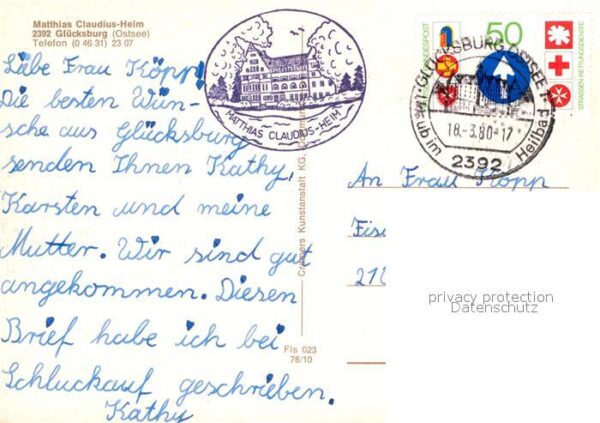 Matthias Claudius-Heim
2392 Glücksburg (Ostsee)
Telefon (0 46 31) 23 07
Liebe Frau Köpp!
Die besten Wün-
sche aus Glücksburg
senden Ihnen Kathy,
Karsten und meine
Mutter. Wir sind gut
angekommen. Diesen
Brief habe ich bei
Schluckauf geschrieben.
Kathy
MATTHIAS CLAUDIUS-HEIM
Cramers Kunstanstalt KG,
Fls 023
76/10
50
STRASSEN-RETTUNGSDIENSTE
GLÜCKSBURG OSTSEE
18.-3.80-17
2392
Urlaub im Heilbad
An Frau Köpp
privacy protection
Datenschutz